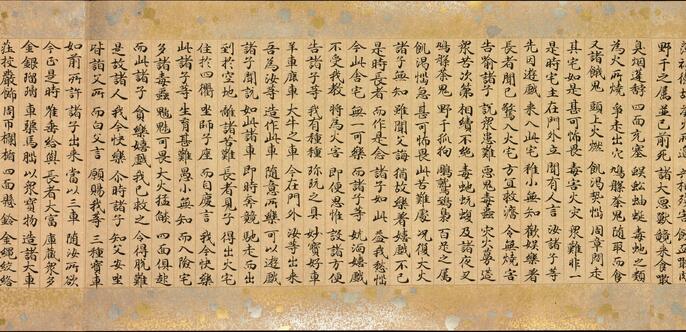 野干之属 並已前死 諸大惡獸 競來食噉
臭烟熢㶿 四面充塞 蜈蚣蚰蜒 毒蛇之類
為火所燒 爭走出穴 鳩槃荼鬼 隨取而食
又諸餓鬼 頭上火燃 飢渇熱惱 周章悶走
其宅如是 甚可怖畏 毒害火災 衆難非一
是時宅主 在門外立 聞有人言 汝諸子等
先因遊戲 來入此宅 稚小無知 歡娯樂著
長者聞已 驚入火宅 方宜救濟 令無燒害
告喻諸子 說衆患難 惡鬼毒蟲 災火蔓莚
衆苦次第 相續不絶 毒蛇蚖蝮 及諸夜叉
鳩槃荼鬼 野干狐狗 鵰鷲鵄梟 百足之属
飢渇惱急 甚可怖畏 此苦難處 况復大火
諸子無知 雖聞父誨 猶故樂著 嬉戲不已
是時長者 而作是念 諸子如此 益我愁惱
今此舍宅 無一可樂 而諸子等 躭湎嬉戲
不受我教 將為火害 即便思惟 設諸方便
告諸子等 我有種種 珎玩之具 妙寶好車
羊車鹿車 大牛之車 今在門外 汝等出來
吾為汝等 造作此車 隨意所樂 可以遊戲
諸子聞說 如此諸車 即時奔競 馳走而出
到於空地 離諸苦難 長者見子 得出火宅
住於四衢 坐師子座 而自慶言 我今快樂
此諸子等 生育甚難 愚小無知 而入險宅
多諸毒蟲 魑魅可畏 大火猛焰 四面俱起
而此諸子 貪樂嬉戲 我已救之 令得脱難
是故諸人 我今快樂 尒時諸子 知父安坐
皆詣父所 而白父言 願賜我等 三種寶車
如前所許 諸子出來 當以三車 隨汝所欲
今正是時 唯垂給與 長者大富 庫藏衆多
金銀瑠璃 車𤦲馬瑙 以衆寶物 造諸大車
莊挍嚴飾 周帀欄楯 四面懸鈴 金縄絞絡